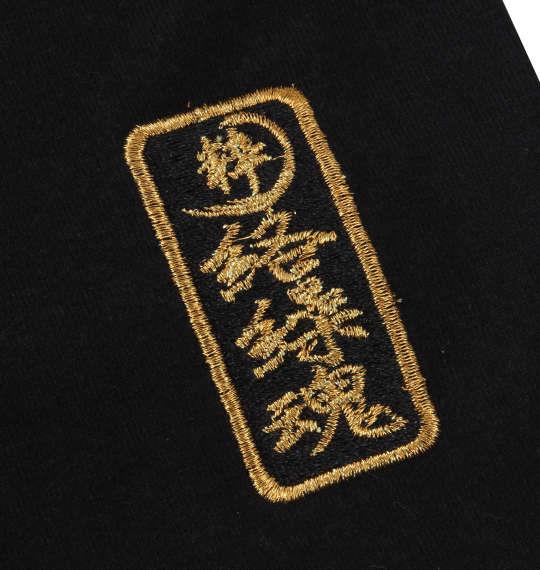 粋
絡繰魂